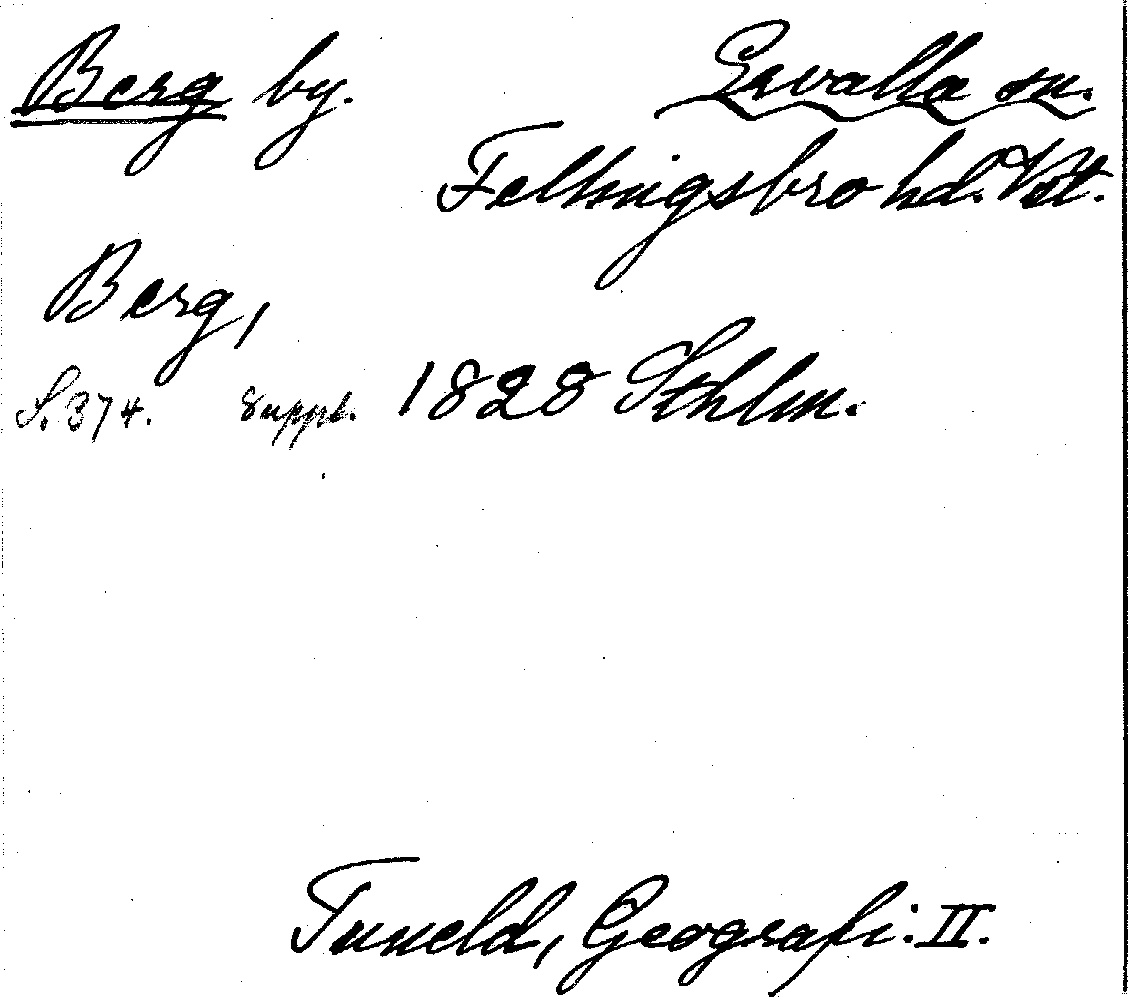 Berg by. Ervalla sn.
Fellingsbro hd. Vstl.
Berg,
S. 374. Suppl. 1828 Sthlm.
Tuneld, Geografi. II.